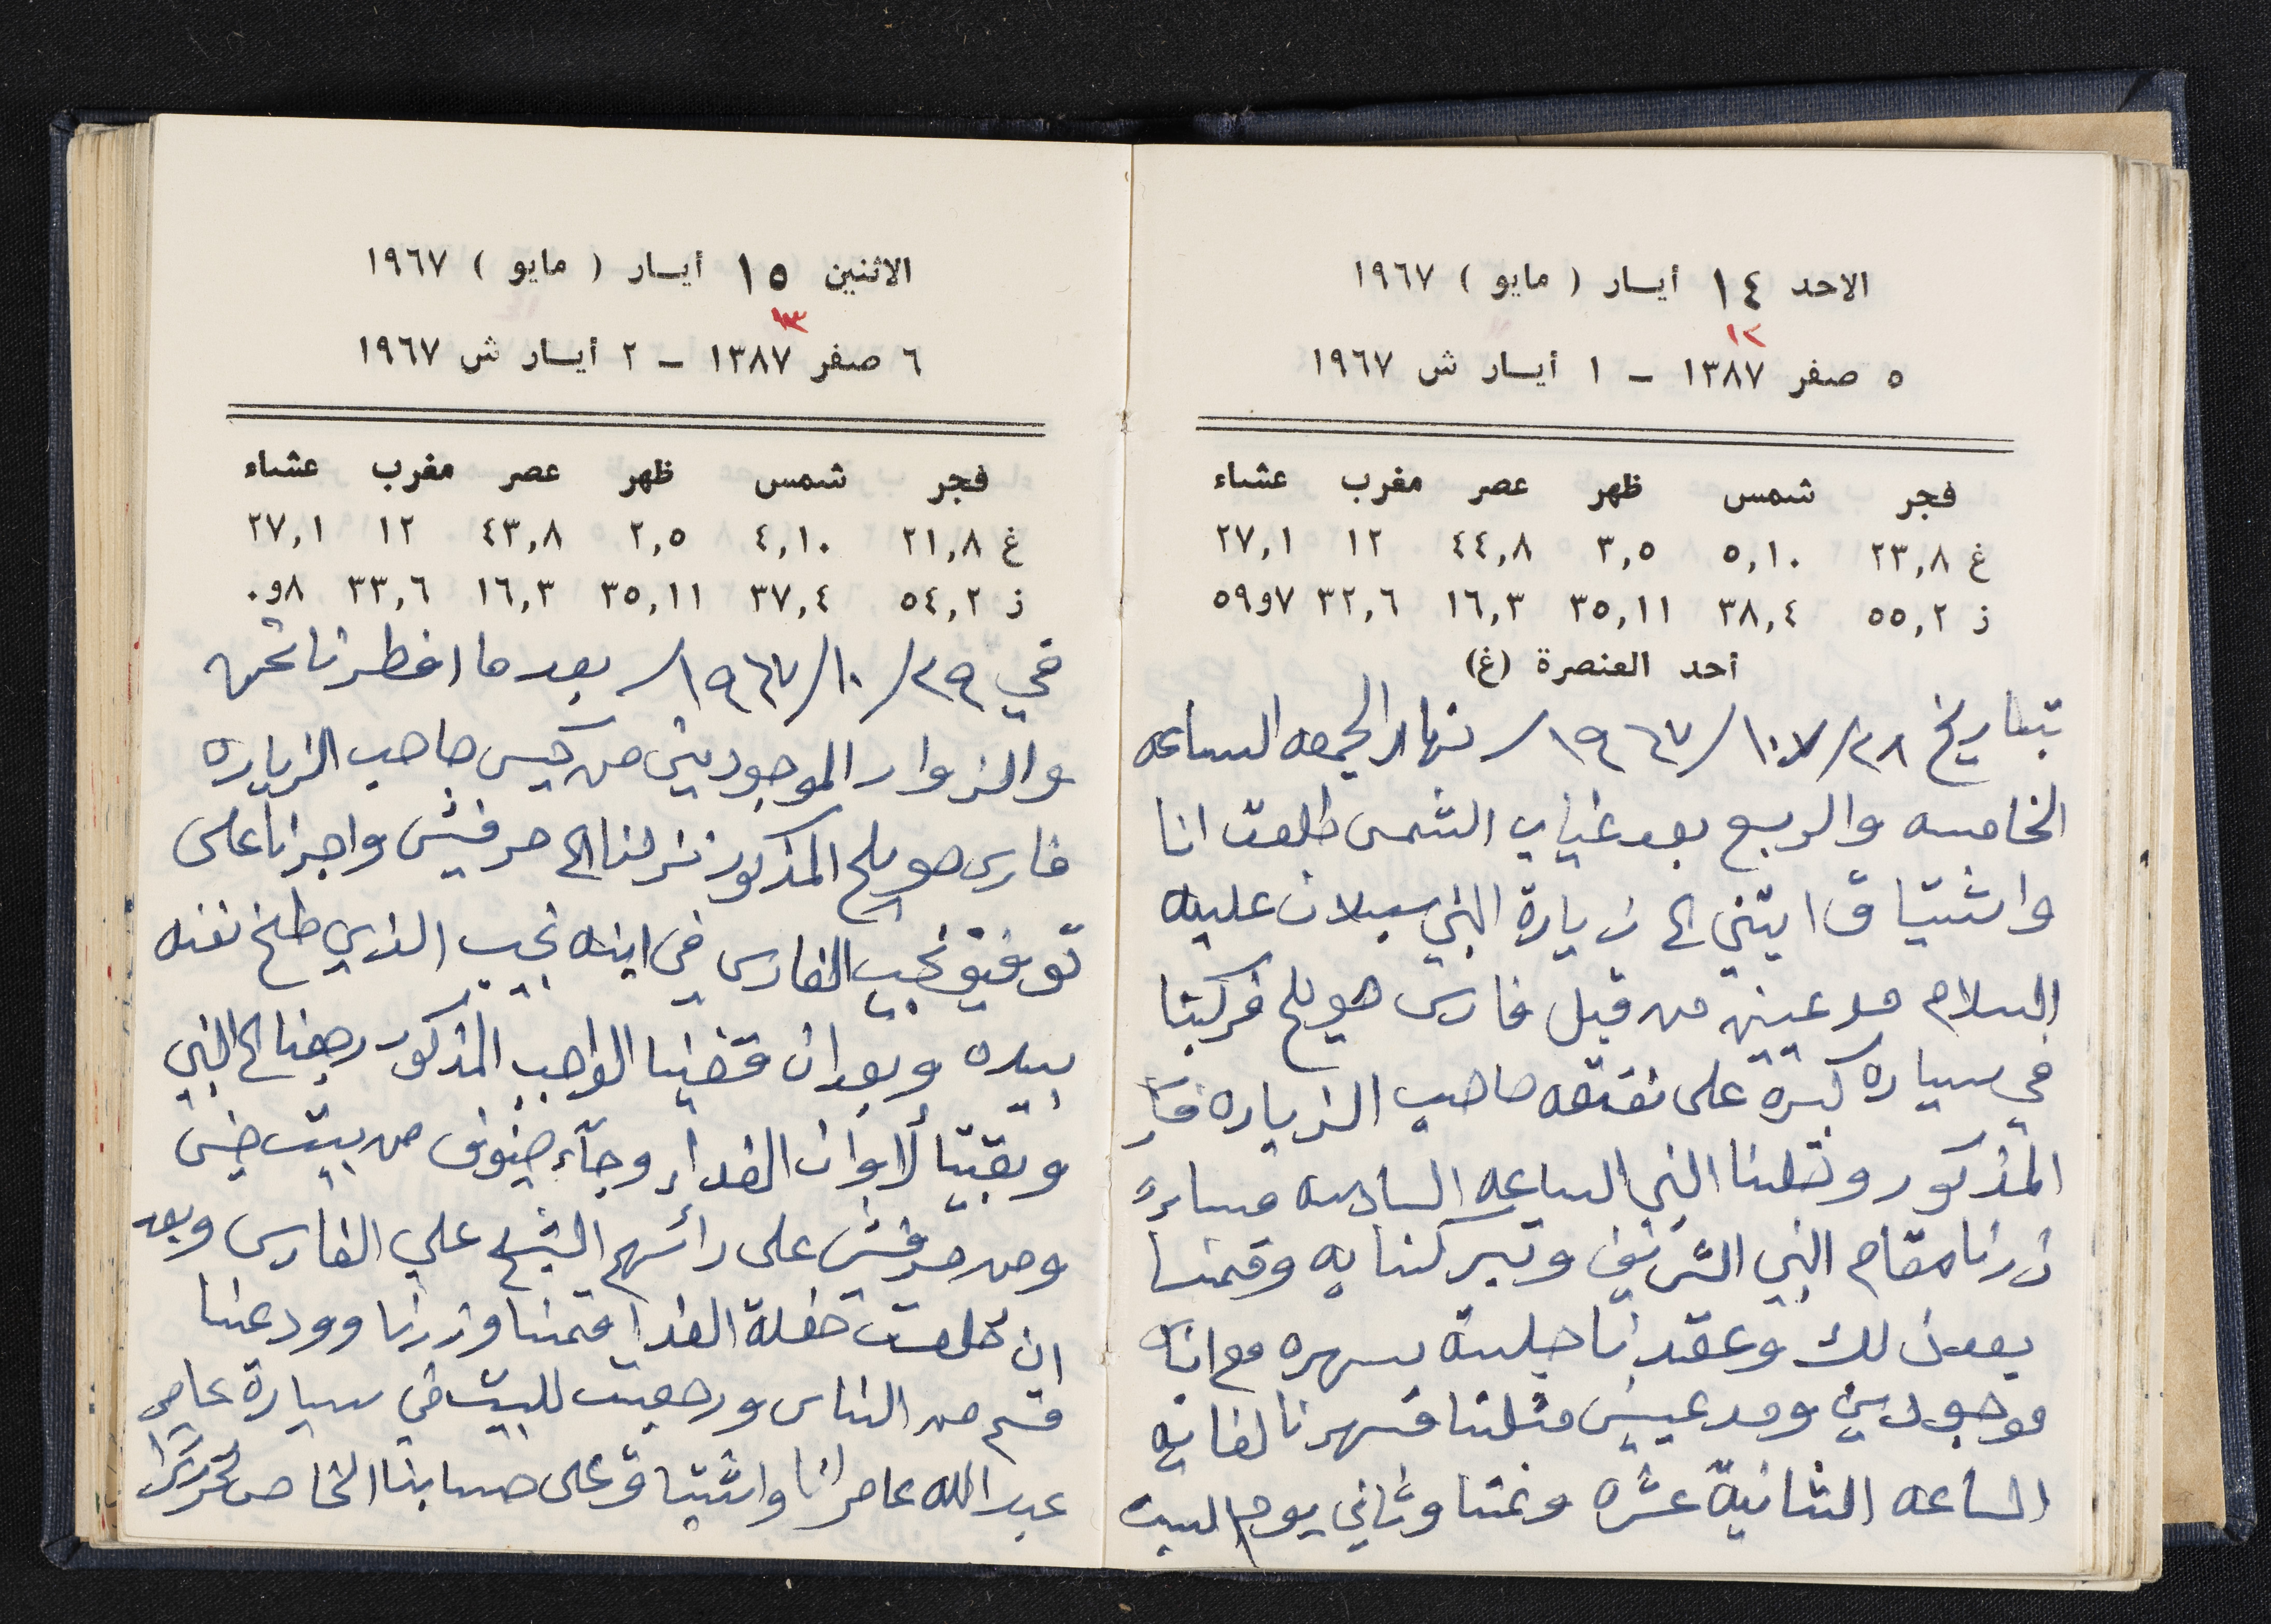 الاحد ١٤ أيار ( مايو ) ١٩٦٧
١٢
٥ صفر ١٣٨٧ – ١ أيار ش ١٩٦٧
فجر شمس ظهر عصر مغرب عشاء
غ ٢٣,٨ ٥,١٠ ٣,٥ ٤٤,٨ ١٢ ٢٧,١
ز ٥٥,٢ ٣٨,٤ ٣٥,١١ ١٦,٣ ٣٢,٦ ٥٩و٧
أحد العنصرة (غ)
بتاريخ ٢٨/١٠/١٩٦٧/ نهار الجمعه الساعه
الخامسه والربع بعد غياب الشمس طلعت انا
واشتياق ابنتي الى زيارة النبي سبلان عليه
السلام مدعيين من قبل فارس هويلح فركبنا
في سياره كبيرة على نفقة صاحب الزياره
المذكور وصلنا النبي الساعه السادسه مساءً
زرنا مقام النبي الشريف وتبركنا به وقمنا
بعد ذلك وعقدنا جلسة بسهره مع اناس
موجودين ومدعيين مثلنا فسهرنا لغاية
الساعه الثانية عشره ونمنا وثاني يوم السبت
الاثنين ١٥ أيار ( مايو ) ١٩٦٧
١٣
٦ صفر ١٣٨٧ – ٢ أيار ش ١٩٦٧
فجر شمس ظهر عصر مغرب عشاء
غ ٢١,٨ ٤,١٠ ٢,٥ ٤٣,٨ ١٢ ٢٧,١
ز ٥٤,٢ ٣٧,٤ ٣٥,١١ ١٦,٣ ٣٣,٦ ٨و٠
في ٢٩/١٠/١٩٦٧/ بعد ما افطرنا نحن
والزوار الموجودين من كيس صاحب الزياره
فارس هويلح المذكور نزلنا الى حرفيش واجرنا على
توفيق نجيب الفارس في ابنه نجيب الذي طخ نفسه
بيده وبعد ان قضينا الواجب المذكور رجعنا الى النبي
وبقينا لاوان الغداء وجاء ضيوف من بيت جن
ومن حرفيش على رائسهم الشيخ علي الفارس وبعد
ان خلصت حفلة الغدا قمنا وزرنا وودعنا
قسم من الناس ورجعت للبيت في سيارة عامر
عبدالله عامر انا واشتياق على حسابنا الخاص تحريرًا